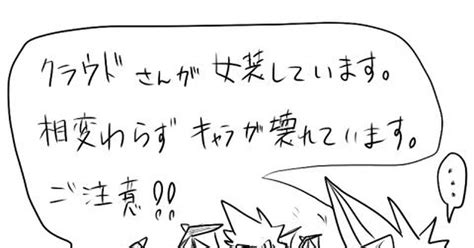 クラウドさんが女装しています。
相変わらずキャラが壊れています。
ご注意!!
...